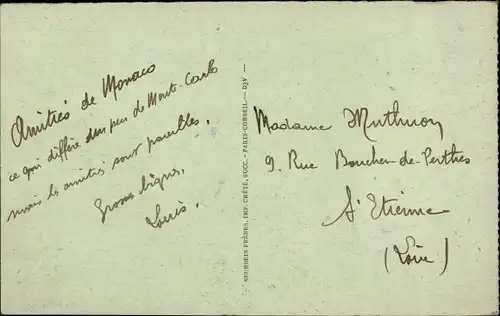 Amitiés de Monaco
ce qui diffère d'un peu de Monte-Carlo
mais les amitiés sont pareilles.
Grosses bises,
Louis.
NEURDEIN FRÈRES, IMP. CRÉTÉ, SUCC. - PARIS-CORBEIL.— D3V —
Madame
9. Rue Boucher-de-Perthes
St Etienne
(Loire)